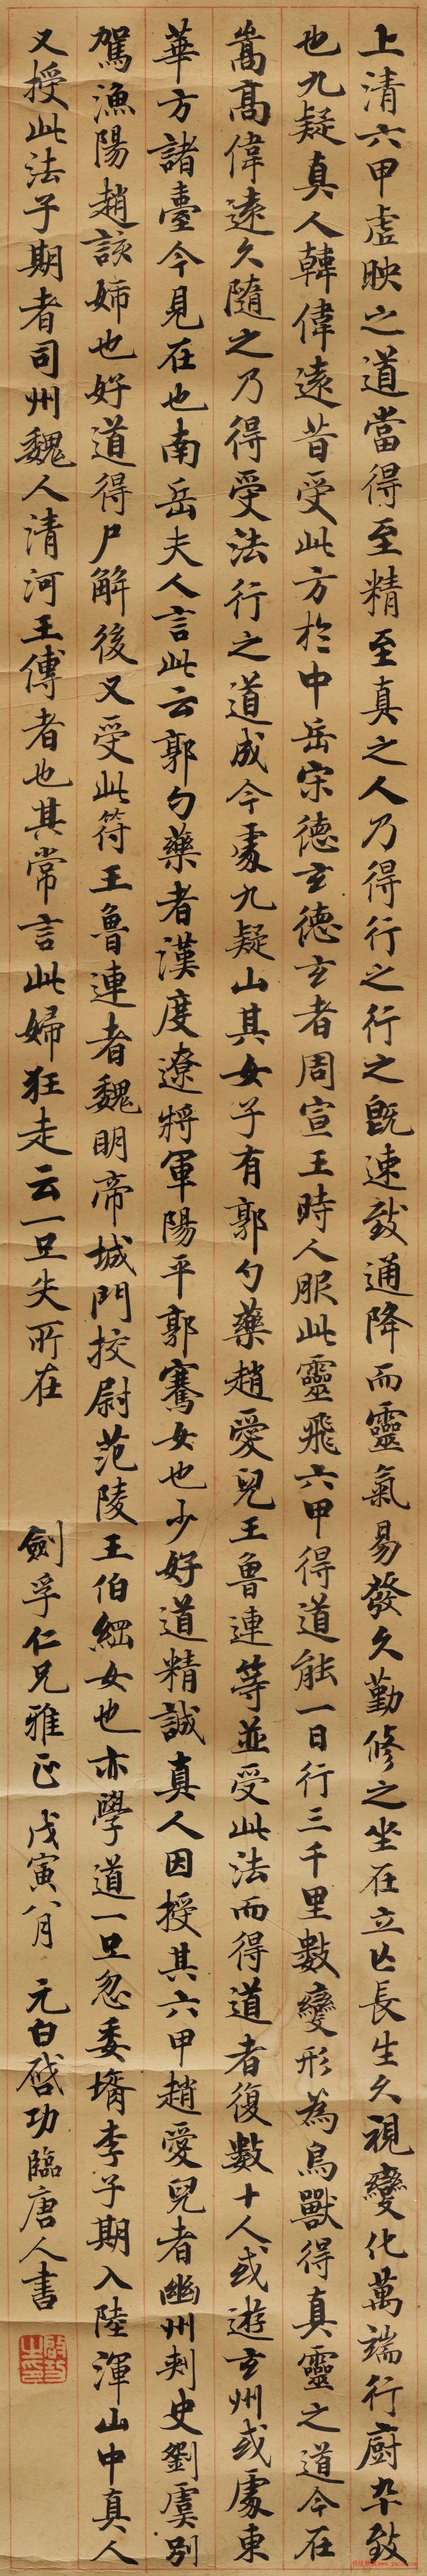 上清六甲虚映之道當得至精至真之人乃得行之行之既速致通降而靈氣易發久勤修之坐在立亡長生久視變化萬端行廚卒致
也九疑真人韓偉遠昔受此方於中岳宋德玄德玄者周宣王時人服此靈飛六甲得道能一日行三千里數變形為鳥獸得真靈之道今在
嵩高偉遠久隨之乃得受法行之道成今處九疑山其女子有郭勺藥趙愛兒王魯連等並受此法而得道者復數十人或遊玄州或處東
華方諸臺今見在也南岳夫人言此云郭勺藥者漢度遼將軍陽平郭騫女也少好道精誠真人因授其六甲趙愛兒者幽州刺史劉虞別
駕漁陽趙該姊也好道得尸解後又受此符王魯連者魏明帝城門校尉范陵王伯綱女也亦學道一旦忽委壻李子期入陸渾山中真人
又授此法子期者司州魏人清河王傅者也其常言此婦狂走云一旦失所在
劍孚仁兄雅正 戊寅八月 元白啓功臨唐人書